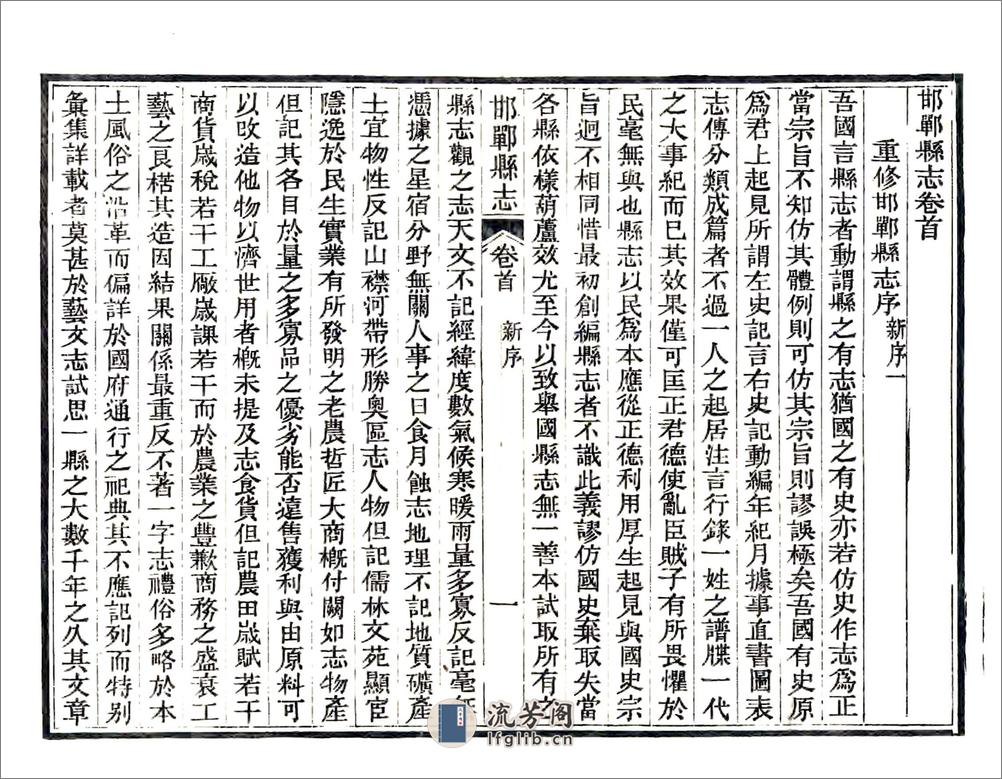 邯鄲縣志卷首
重修邯鄲縣志序 新序一
吾國言縣志者動謂縣之有志猶國之有史亦若仿史作志爲正
當宗旨不知仿其體例則可仿其宗旨則謬誤極矣吾國有史原
爲君上起見所謂左史記言右史記動編年紀月據事直書圖表
志傳分類成篇者不過一人之起居注言行錄一姓之譜牒一代
之大事紀而已其效果僅可匡正君德使亂臣賊子有所畏懼於
民毫無與也縣志以民爲本應從正德利用厚生起見與國史宗
旨迥不相同惜最初創編縣志者不識此義謬仿國史棄取失當
各縣依樣葫蘆效尤至今以致舉國縣志無一善本試取所有之
邯鄲縣志 卷首 新序 一
縣志觀之志天文不記經緯度數氣候寒暖雨量多寡反記毫無
憑據之星宿分野無關人事之日食月蝕志地理不記地質礦產
土宜物性反記山襟河帶形勝奧區志人物但記儒林文苑顯宦
隱逸於民生實業有所發明之老農哲匠大商槪付闕如志物產
但記其各目於量之多寡品之優劣能否遠售獲利與由原料可
以攺造他物以濟世用者槪未提及志食貨但記農田歲賦若干
商貨歲稅若干工厰歲課若干而於農業之豐歉商務之盛衰工
藝之良楛其造因結果關係最重反不著一字志禮俗多略於本
土風俗之沿革而偏詳於國府通行之祀典其不應記列而特别
彙集詳載者莫甚於藝文志試思一縣之大數千年之久其文章
流芳阁
lfglib.cn